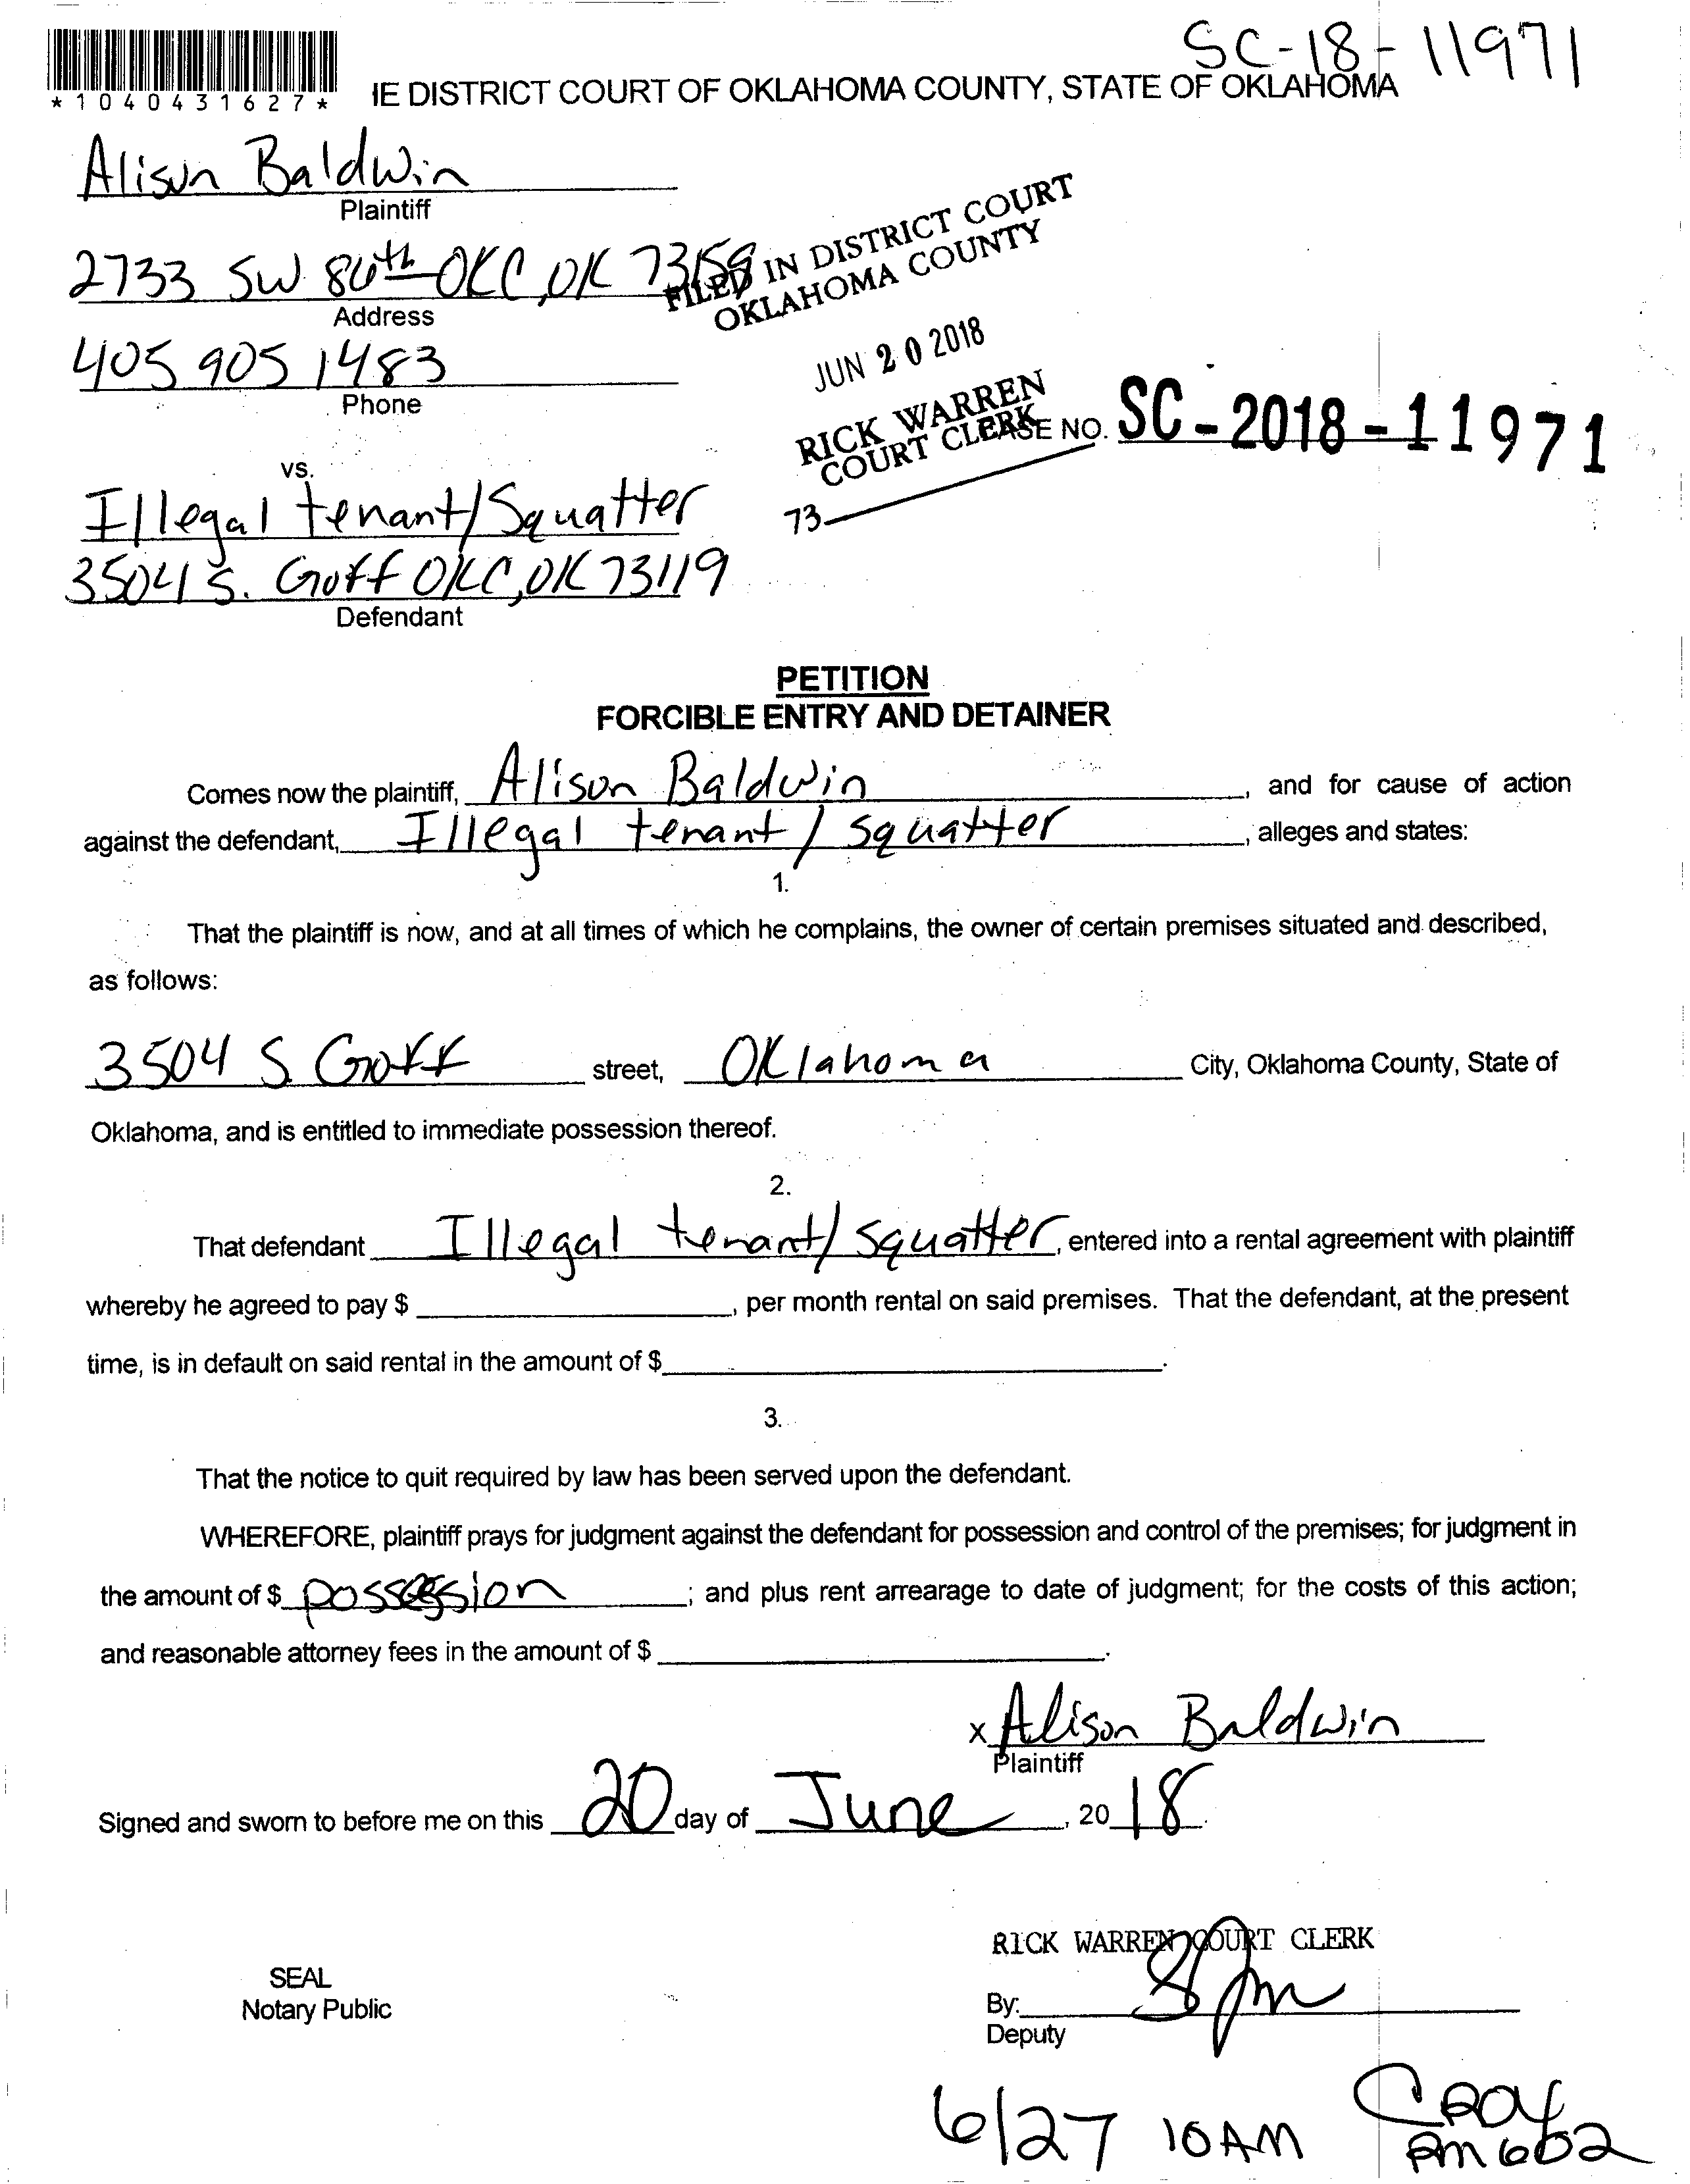 SC-18-11971
*1040431627*
IE DISTRICT COURT OF OKLAHOMA COUNTY, STATE OF OKLAHOMA
Alison Baldwin
Plaintiff
2733 SW 86th OKC, OK 73159
Address
FILED IN DISTRICT COURT
OKLAHOMA COUNTY
405 905 1483
Phone
JUN 20 2018
RICK WARREN
COURT CLERK
CASE NO. SC-2018-11971
73
vs.
Illegal tenant/Squatter
3504 S. Goff OKC, OK 73119
Defendant
PETITION
FORCIBLE ENTRY AND DETAINER
Comes now the plaintiff, Alison Baldwin, and for cause of action
against the defendant, Illegal tenant / squatter, alleges and states:
1.
That the plaintiff is now, and at all times of which he complains, the owner of certain premises situated and described,
as follows:
3504 S. Goff street, Oklahoma City, Oklahoma County, State of
Oklahoma, and is entitled to immediate possession thereof.
2.
That defendant Illegal tenant/squatter, entered into a rental agreement with plaintiff
whereby he agreed to pay $, per month rental on said premises. That the defendant, at the present
time, is in default on said rental in the amount of $.
3.
That the notice to quit required by law has been served upon the defendant.
WHEREFORE, plaintiff prays for judgment against the defendant for possession and control of the premises; for judgment in
the amount of $ possession; and plus rent arrearage to date of judgment; for the costs of this action;
and reasonable attorney fees in the amount of $.
x Alison Baldwin
Plaintiff
Signed and sworn to before me on this 20 day of June, 2018.
RICK WARREN COURT CLERK
SEAL
Notary Public
By:
Deputy
6/27 10AM
RM 602